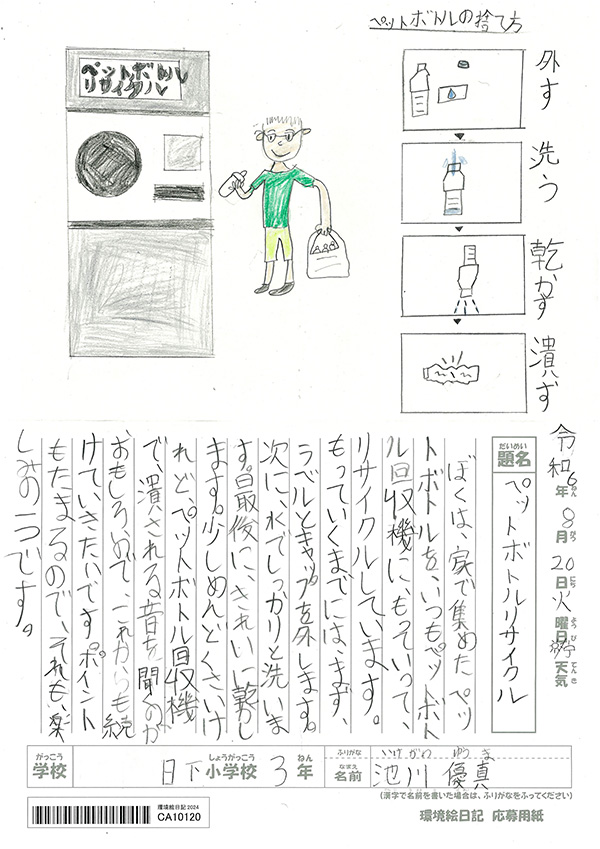 ペットボトルの捨て方
ペットボトル
リサイクル
外す
洗う
乾かす
潰す
令和6年8月20日火曜日 天気
ねん
がつ
にち
よう び
てん き
だいめい
題名
ペットボトルリサイクル
ぼくは、家で集めたペッ
トボトルを、いつもペットボト
ル回収機に、もっていって、
リサイクルしています。
もっていくまでには、まず、
ラベルとキャップを外します。
次に、水でしっかりと洗いま
す。最後に、きれいに乾かし
ます。少しめんどくさいけ
れど、ペットボトル回収機
で、潰される音を、聞くのが
おもしろいので、これからも続
けていきたいです。ポイント
もたまるので、それも、楽
しみの一つです。
がっこう
学校
日下
しょうがっこう
小学校
3
ねん
年
ふりがな
いけがわ ゆうま
なまえ
名前
池川 優真
(漢字で名前を書いた場合は、ふりがなをふってください)
環境絵日記2024
CA10120
環境絵日記 応募用紙